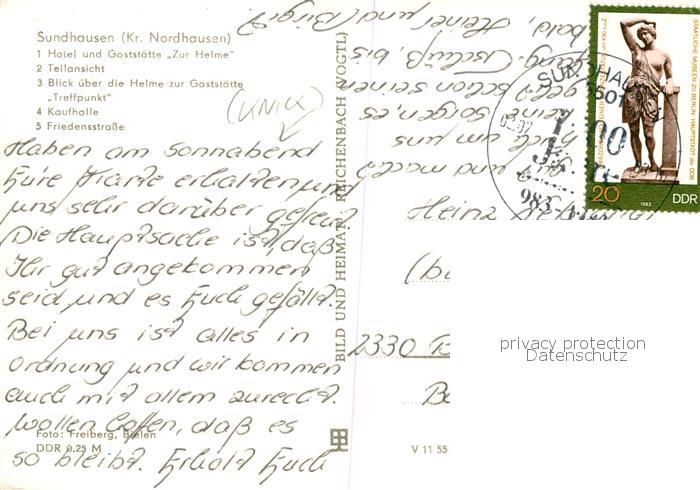 Sundhausen (Kr. Nordhausen)
1 Hotel und Gaststätte „Zur Helme"
2 Teilansicht
3 Blick über die Helme zur Gaststätte
„Treffpunkt"
4 Kaufhalle
5 Friedensstraße
Haben am Sonnabend
Eure Karte erhalten und
uns sehr darüber gefreut.
Die Hauptsache ist, daß
Ihr gut angekommen
seid und es Euch gefällt.
Bei uns ist alles in
Ordnung und wir kommen
auch mit allem zurecht.
Wollen hoffen, daß es
so bleibt. Erholt Euch
Foto: Freiberg, Bielen
DDR 0,25 M
BILD UND HEIMAT REICHENBACH (VOGTL)
V 11 55
gut und macht
Euch um uns
keine Sorgen, es
geht schon seinen
Gang. Tschüß, bis
bald, Heiner und (Birgit)
SUNDHAU
5501
983
STAATLICHE MUSEEN ZU BERLIN HAUPTSTADT der DDR
20
1983
DDR
Heinz
2330 B
privacy protection
Datenschutz